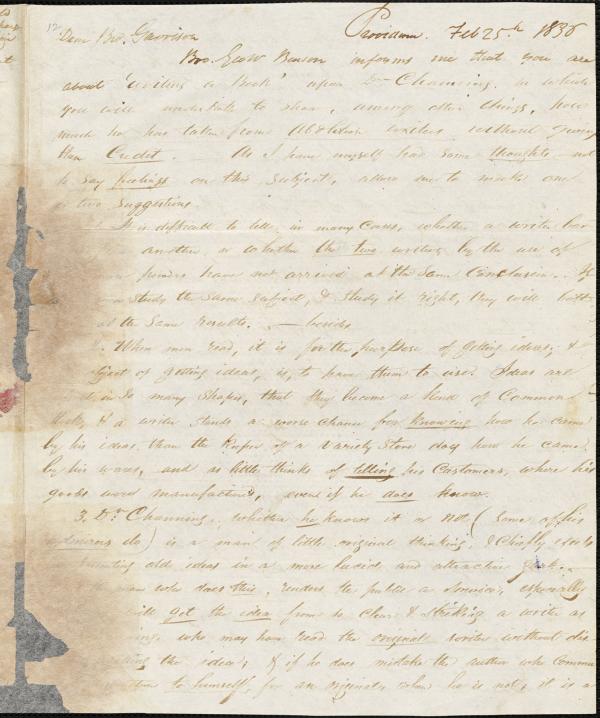 12
Providence. Feb 25th 1836
Dear Bro. Garrison
Bro. Geo W Benson informs me that you are
about 'writing a Book' upon Dr Channing, in which
you will undertake to show, among other things, how
much he has taken from Abolition writers without giving
them Credit. As I have myself had some thoughts not
to say feelings on this subject, allow me to make one
or two suggestions.
It is difficult to tell, in many cases, whether a writer has
another, or whether the two writing by the use of
powers have not arrived at the same conclusion. If
study the same subject, & study it right, they will both
at the same results. — besides
When men read, it is for the purpose of getting ideas; &
object of getting ideas, is, to have them to use. Ideas are
in so many shapes, that they become a kind of Common
Stock, & a writer stands a worse chance for knowing how he came
by his ideas than the keeper of a variety store does how he came
by his wares, and as little thinks of telling his customers, where his
goods were manufactured, even if he does know.
3. Dr Channing, whether he knows it or not (some of his
admirers do) is a man of little original thinking. I chiefly excels
presenting old ideas in a more lucid and attractive
man who does this, renders the public a service, especially
will get the idea from so clear & striking a writer as
who may have read the original writer without
the idea; & if he does mistake the author who
to himself, for an original, when he is not, it is a